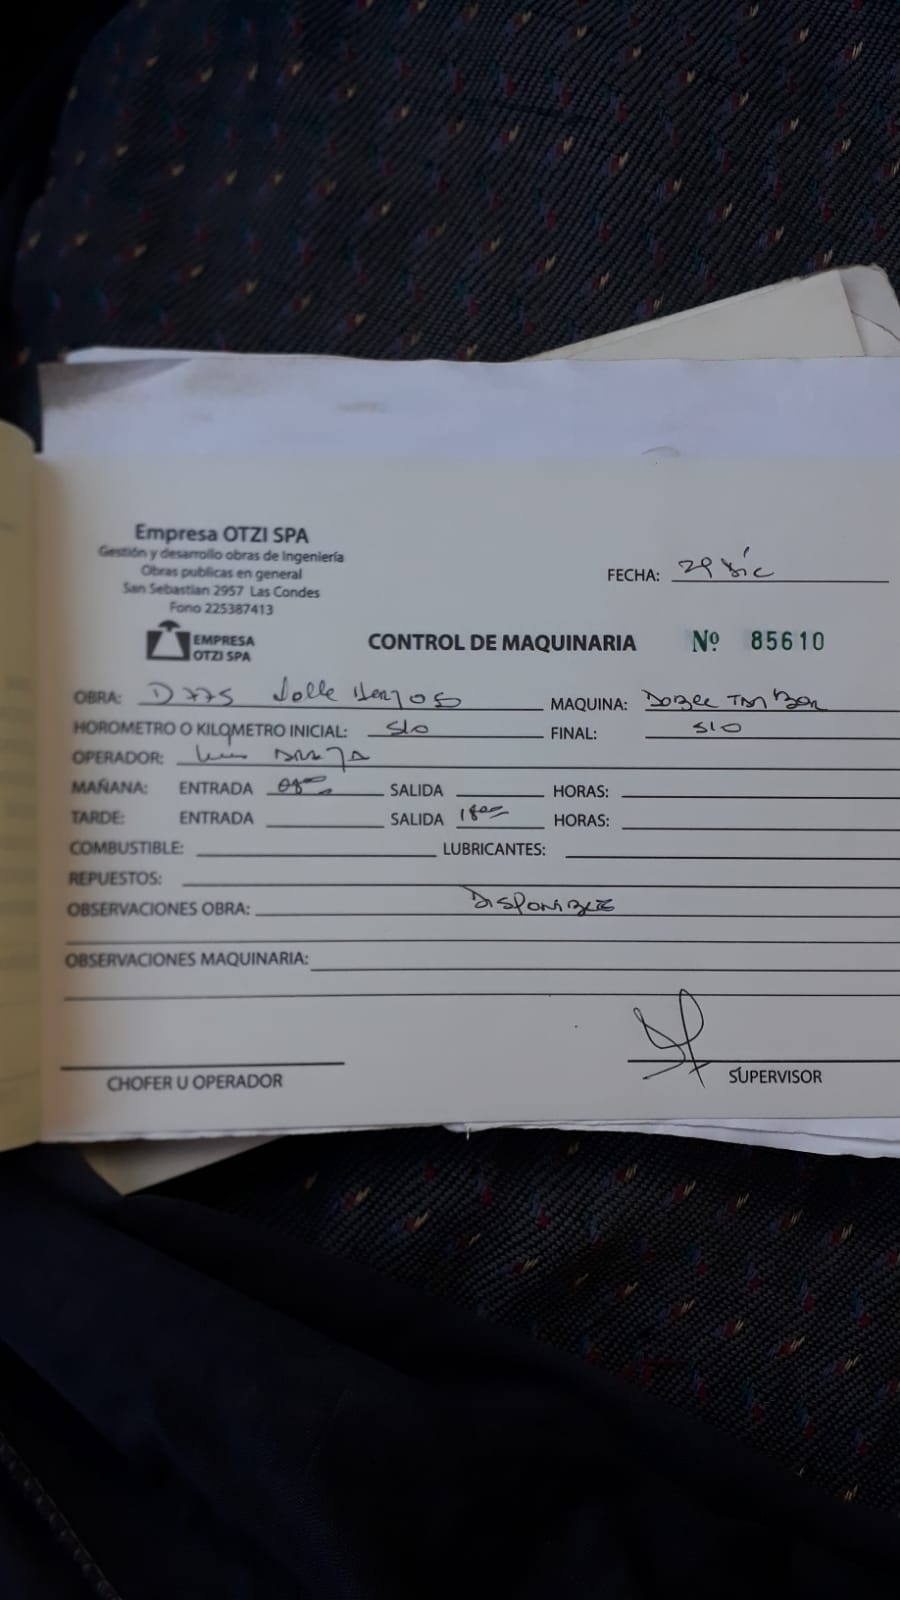 Empresa OTZI SPA
Gestión y desarrollo obras de Ingeniería
Obras publicas en general
San Sebastian 2957 Las Condes
Fono 225387413
EMPRESA
OTZI SPA
FECHA: 29 Dic
CONTROL DE MAQUINARIA Nº 85610
OBRA: D775 MAQUINA: DOBLE TAMBOR
HOROMETRO O KILOMETRO INICIAL: S/O FINAL: S/O
OPERADOR: Luis
MAÑANA: ENTRADA 08⁰⁰ SALIDA HORAS:
TARDE: ENTRADA SALIDA 18⁰⁰ HORAS:
COMBUSTIBLE: LUBRICANTES:
REPUESTOS:
OBSERVACIONES OBRA: DISPONIBLE
OBSERVACIONES MAQUINARIA:
CHOFER U OPERADOR SUPERVISOR